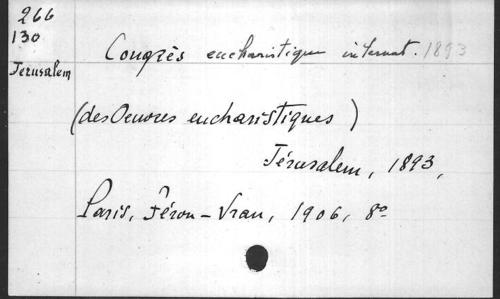 266
130
Jerusalem
Congrès eucharistique internat. 1893
(des Oeuvres eucharistiques)
Jérusalem, 1893,
Paris, Féron-Vrau, 1906, 8º